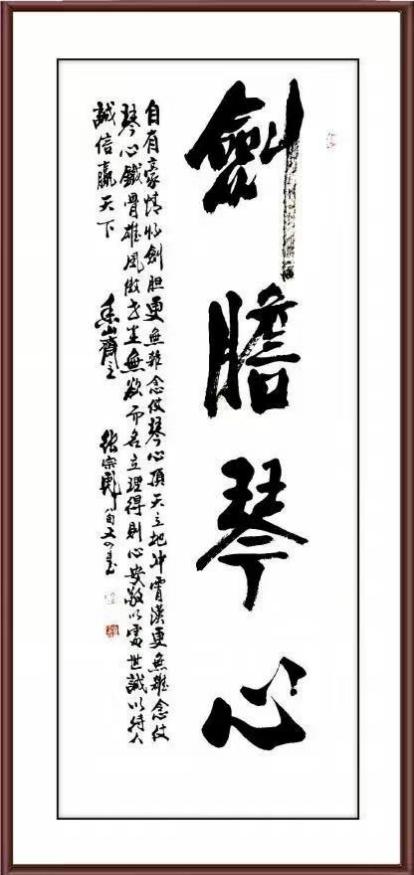 劍膽琴心
自有豪情怀劍胆更無雜念仗琴心頂天立地冲霄漢更無雜念仗
琴心鐵骨雄風傲世塵無欲而名立理得則心安敬以處世誠以待人
誠信贏天下 香山齋主 張宗彪